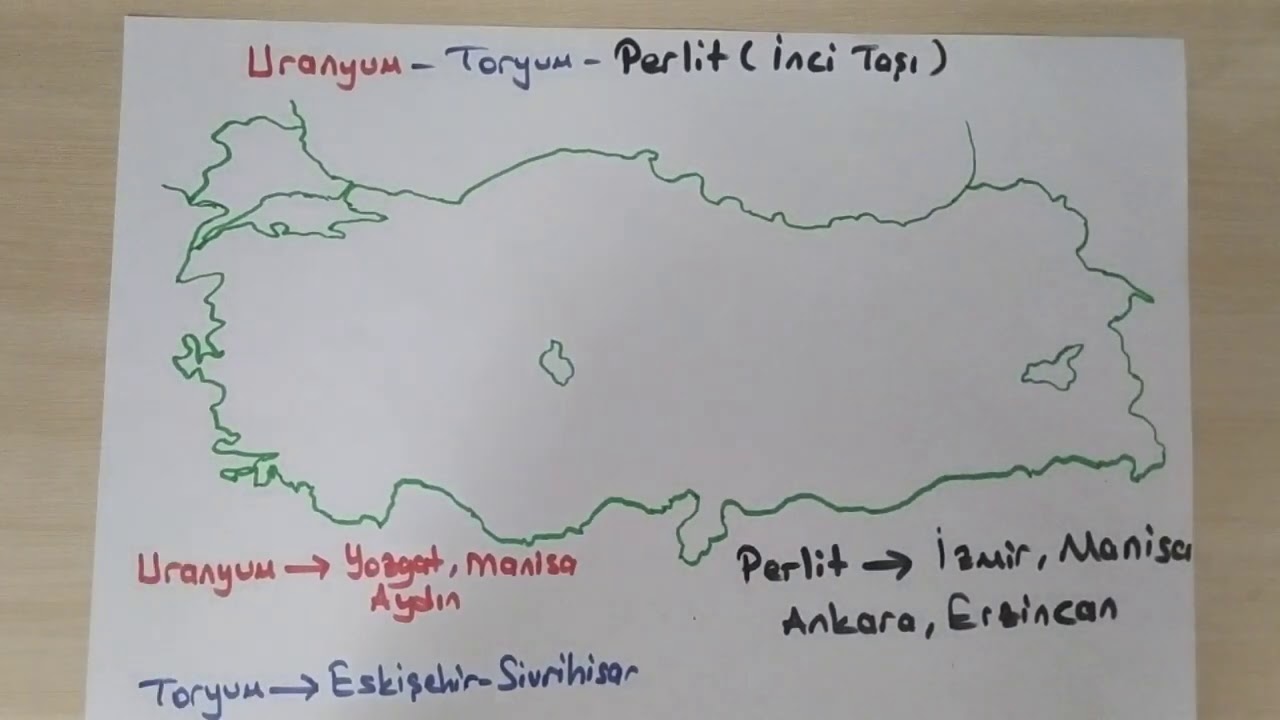 Uranyum - Toryum - Perlit ( İnci Taşı )
Uranyum → Yozgat, Manisa
Aydın
Toryum → Eskişehir - Sivrihisar
Perlit → İzmir, Manisa
Ankara, Erzincan